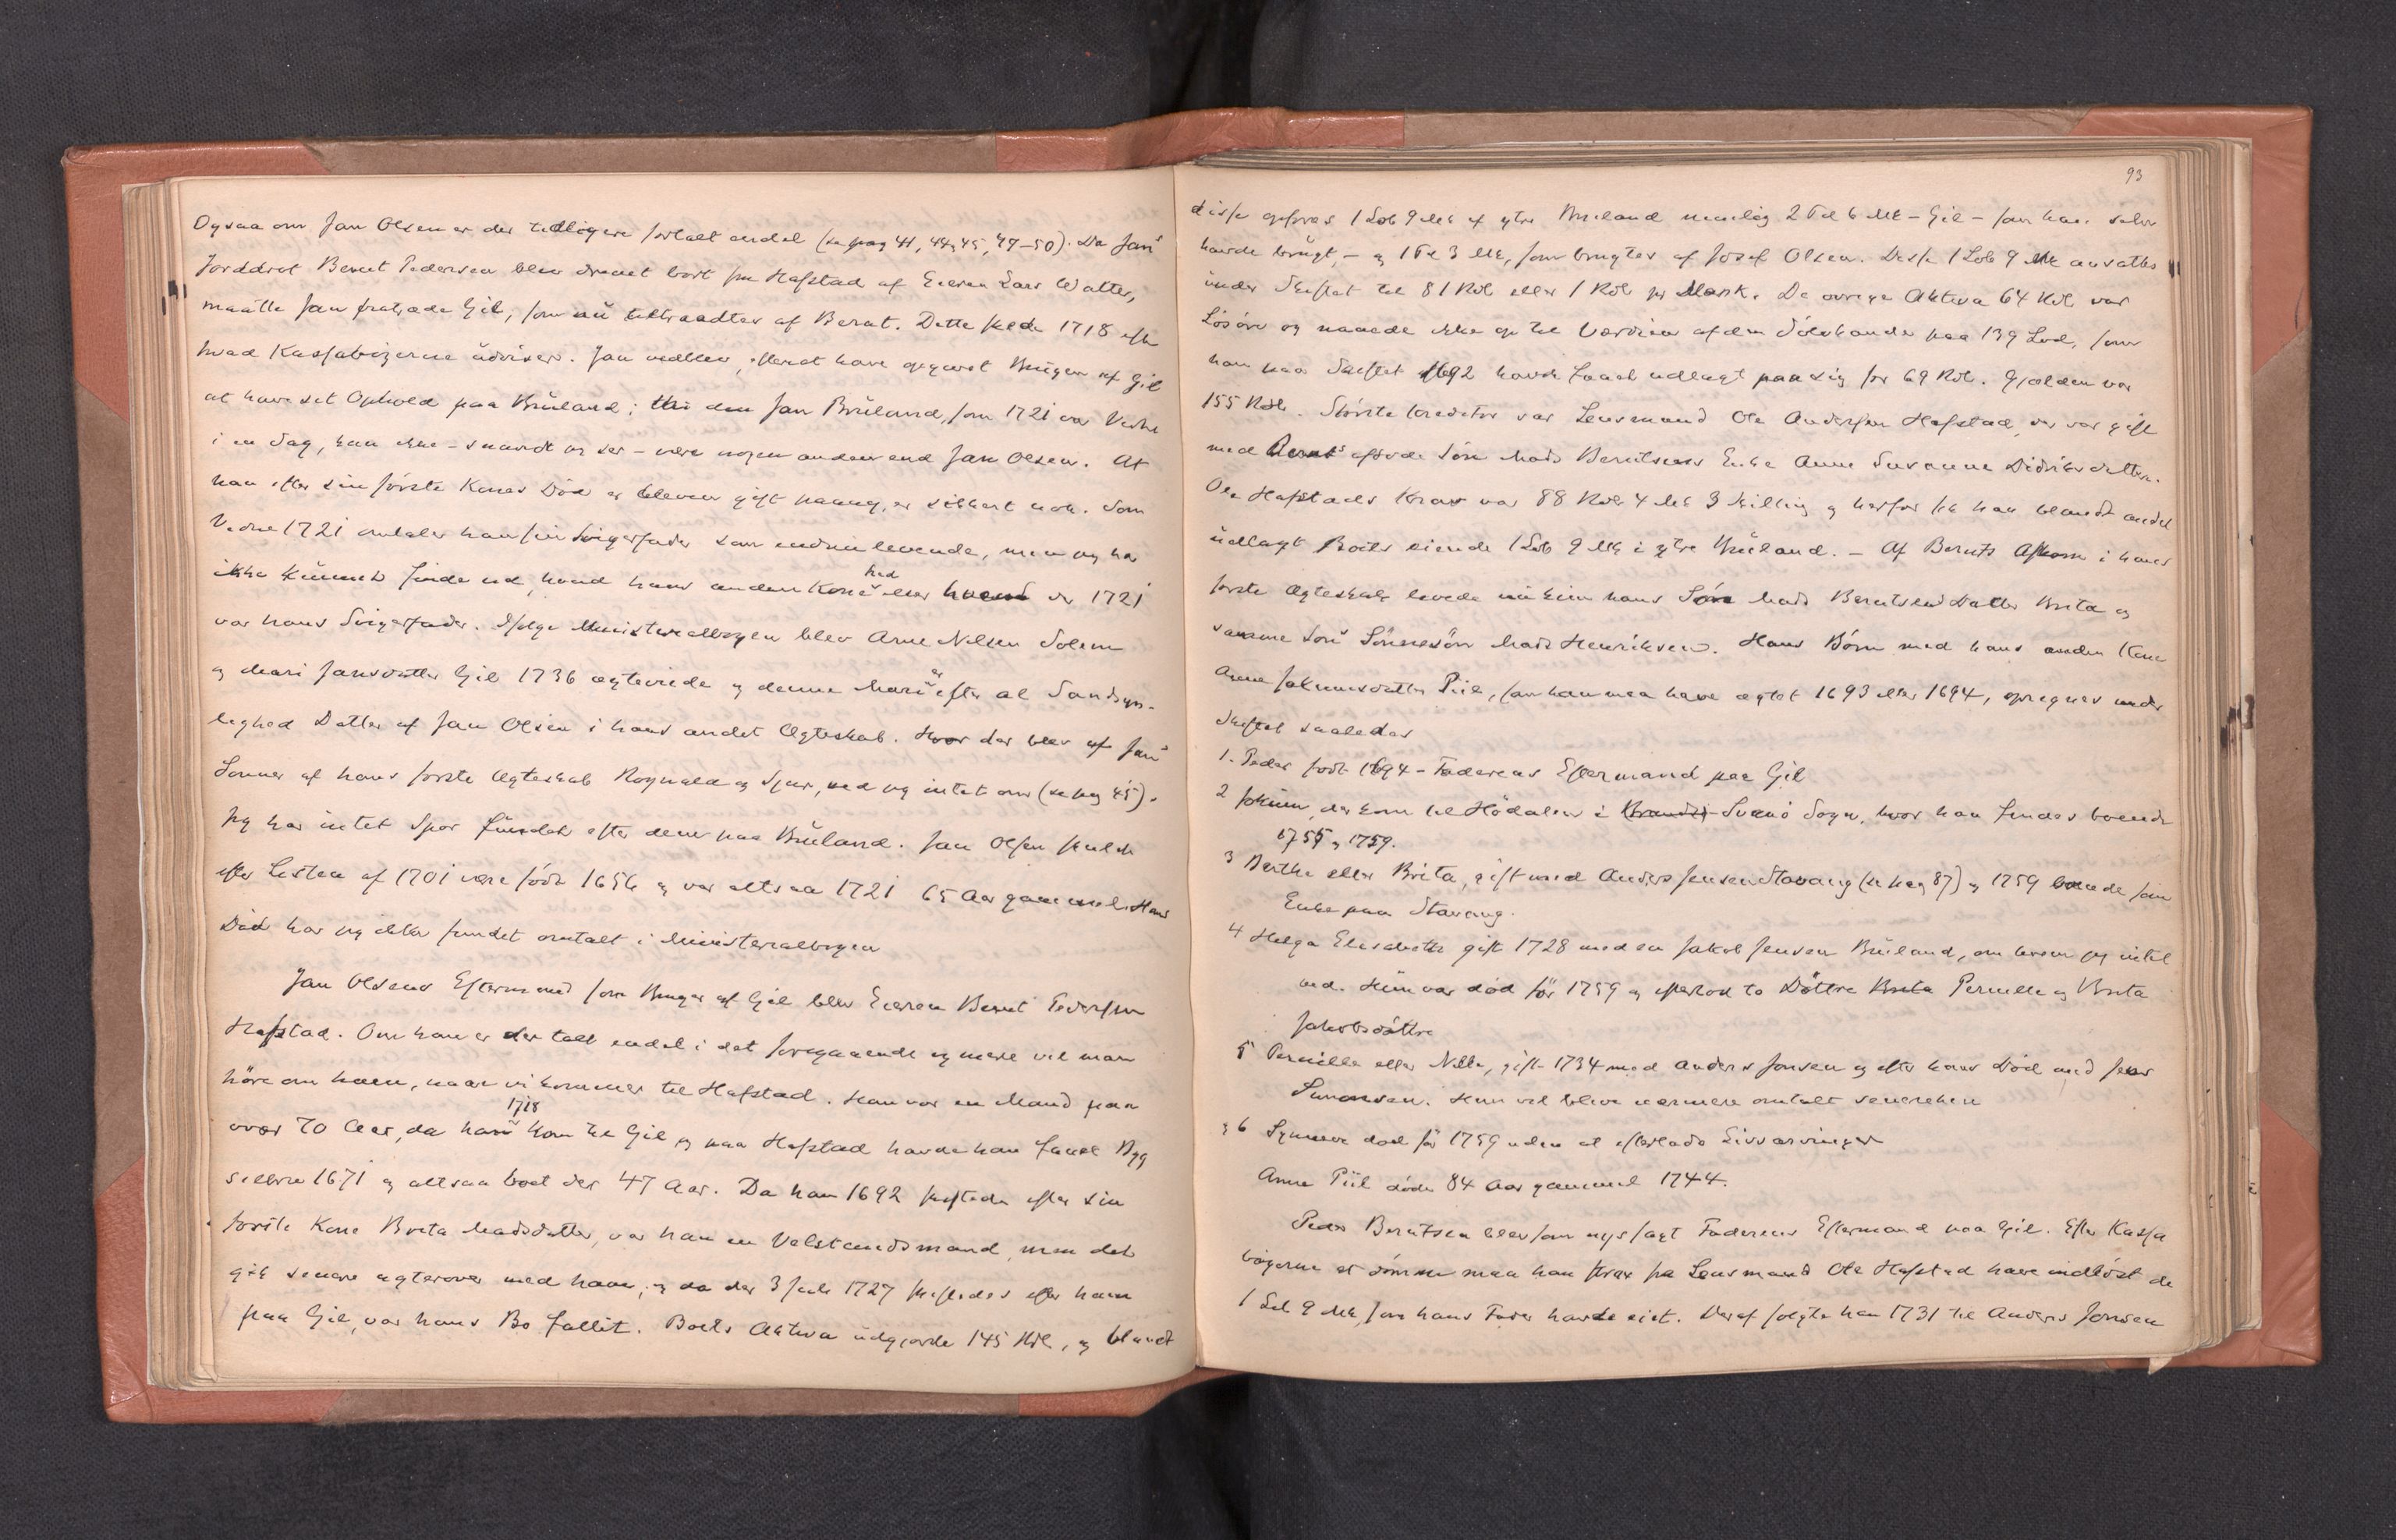 Ogsaa om Jan Olsen er der tidligere fortalt endel (se pag 41, 44, 45, 49-50). Da Jans
Jorddrot Bernt Pedersen blev drevet bort fra Hafstad af Eieren Lars Walter,
maatte Jan fratræde Gil, som nu tiltraadtes af Bernt. Dette skede 1718 efter
hvad Kassabøgerne udviser. Jan vedblev, efterat have opgivet Brugen af Gil
at have sit Ophold paa Bruland; thi den Jan Bruland, som 1721 var Vidne
i en Sag, kan ikke - saavidt jeg ser - være nogen anden end Jan Olsen. At
han efter sin første Kones Død er bleven gift paany, er sikkert nok. Som
Vidne 1721 omtaler han sin Svigerfader som endnu levende, men jeg har
ikke kunnet finde ud, hvad hans anden Kone hed eller hvem der 1721
var hans Svigerfader. Ifølge Ministerialbogen blev Arne Nilsen Solem
og Mari Jansdatter Gil 1736 ægteviede og denne Mari er efter al Sandsyn-
lighed Datter af Jan Olsen i hans andet Ægteskab. Hvor der blev af Jans
Sønner af hans første Ægteskab Rognald og Sjur, ved jeg intet om (se pag 45).
Jeg har intet Spor fundet efter dem paa Bruland. Jan Olsen skulde
efter Listen af 1701 være født 1656 og var altsaa 1721 65 Aar gammel. Hans
Død har jeg ikke fundet omtalt i Ministerialbogen
Jan Olsens Eftermand som Bruger af Gil blev Eieren Bernt Pedersen
Hafstad. Om ham er der talt endel i det foregaaende og mere vil man
høre om ham, naar vi kommer til Hafstad. Han var en Mand paa
over 70 Aar, da han 1718 kom til Gil og paa Hafstad havde han faaet Byg
selbrev 1671 og altsaa boet der 47 Aar. Da han 1692 skiftede efter sin
første Kone Brita Madsdatter, var han en Velstandsmand, men det
gik senere agterover med ham, og da der 3 Juli 1727 skiftedes efter ham
paa Gil, var hans Bo fallit. Boets Aktiva udgjorde 145 Rdl, og blandt
93
disse opføres 1 Løb 9 Mk af ytre Bruland nemlig 2 Pd 6 Mk - Gil - som han selv
havde brugt, - og 1 Pd 3 Mk, som brugtes af Josef Olsen. Disse 1 Løb 9 Mk ansattes
under Skiftet til 81 Rdl eller 1 Rdl pr Mark. De øvrige Aktiva 64 Rdl var
Løsøre og naaede ikke op til Værdien af den Sølvkande paa 139 Lod, som
han paa Skiftet 1692 havde faaet udlagt paa sig for 69 Rdl. Gjælden var
155 Rdl. Største Kreditor var Lensmand Ole Andersen Hafstad, der var gift
med Bernts afdøde Søn Mads Berntsens Enke Anne Susanne Didriksdatter.
Ole Hafstads Krav var 88 Rdl 4 Mk 3 Skilling og herfor fik han blandt andet
udlagt Boets eiende 1 Løb 9 Mk i ytre Bruland. - Af Bernts Afkom i hans
første Ægteskab levede nu kun hans Søn Mads Berntsens Datter Brita og
samme Søns Sønnesøn Mads Henriksen. Hans Børn med hans anden Kone
Anne Jokumsdatter Piil, som han maa have ægtet 1693 eller 1694, opregnes under
Skiftet saaledes
1. Peder født 1694 - Faderens Eftermand paa Gil
2 Jokum, der kom til Hødalen i Svanø Sogn, hvor han findes boende
1755 og 1759.
3 Berthe eller Brita, gift med Anders Jensen Stavang (se pag 87) og 1759 boende som
Enke paa Stavang.
4 Helga Elisabeth gift 1728 med en Jakob Jensen Bruland, om hvem jeg intet
ved. Hun var død før 1759 og efterlod to Døttre Pernille og Brita
Jakobsdøttre
5 Pernille eller Nille, gift 1734 med Anders Jonsen og efter hans Død med Jens
Simonsen. Hun vil blive nærmere omtalt senerehen
og 6 Synneve død før 1759 uden at efterlade Livsarvinger
Anne Piil døde 84 Aar gammel 1744.
Peder Berntsen blev som nys sagt Faderens Eftermand paa Gil. Efter Kassa
bøgerne at dømme maa han strax fra Lensmand Ole Hafstad have indløst de
1 Løb 9 Mk, som hans Fader havde eiet. Deraf solgte han 1731 til Anders Jonsen